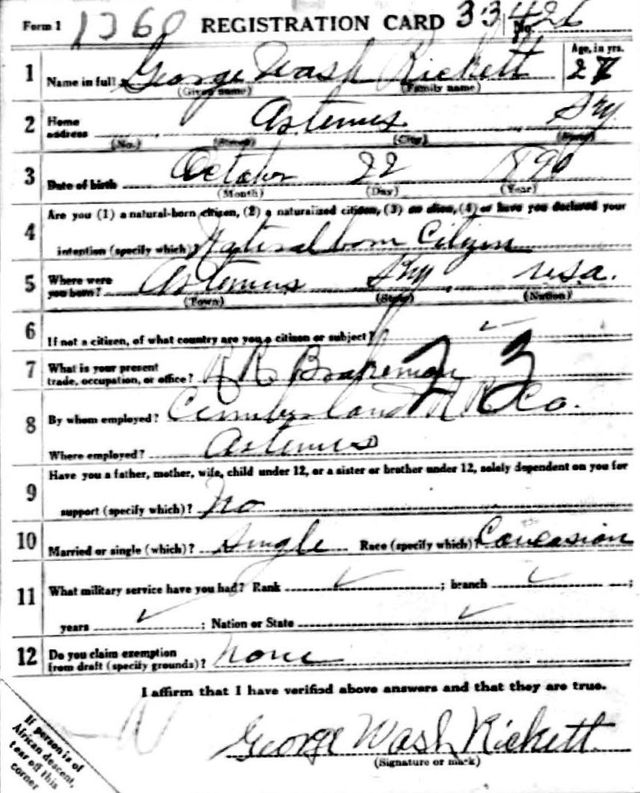 Form 1 1360 REGISTRATION CARD 33 426 No.
1 Name in full George Wash Rickett Age, in yrs.
(Given name) (Family name)
2 Home address Artemus Ky
(No.) (Street) (City) (State)
3 Date of birth October 22 1896
(Month) (Day) (Year)
4 Are you (1) a natural-born citizen, (2) a naturalized citizen, (3) an alien, (4) or have you declared your
intention (specify which)? Natural born Citizen
5 Where were you born? Artemus Ky. U.S.a.
(Town) (State) (Nation)
6 If not a citizen, of what country are you a citizen or subject?
7 What is your present trade, occupation, or office? R R Brakeman 23
8 By whom employed? Cumberland R R Co.
Where employed? Artemus
9 Have you a father, mother, wife, child under 12, or a sister or brother under 12, solely dependent on you for
support (specify which)? No
10 Married or single (which)? Single Race (specify which)? Caucasian
11 What military service have you had? Rank ; branch ;
years ; Nation or State
12 Do you claim exemption from draft (specify grounds)? None
I affirm that I have verified above answers and that they are true.
George Wash Rickett
(Signature or mark)
If person is of
African descent,
tear off this
corner